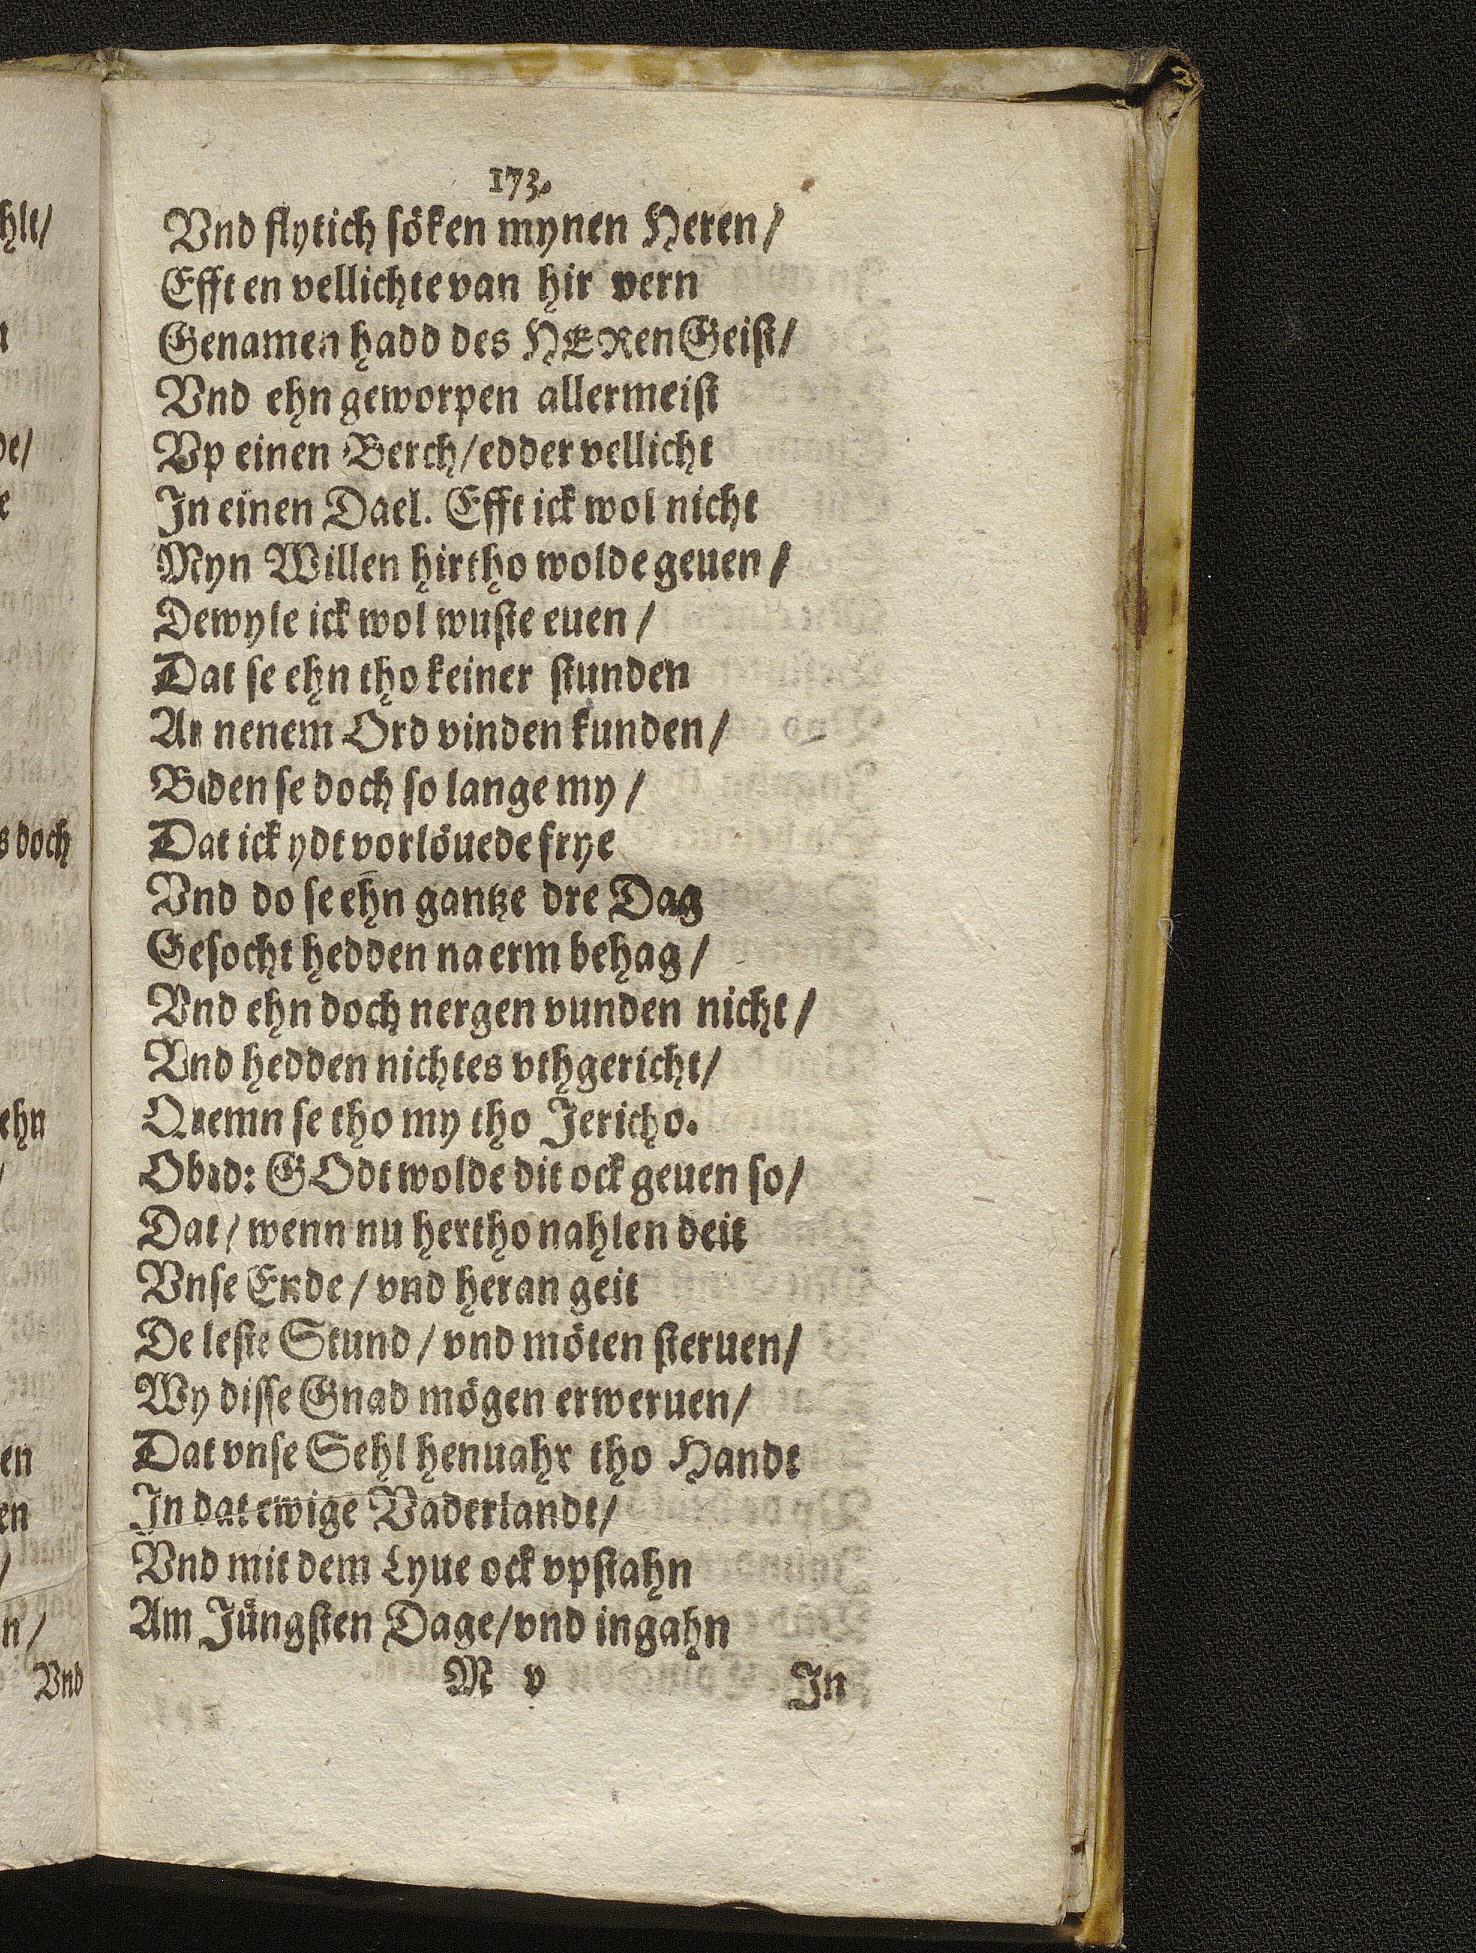 173.
Vnd flytich söken mynen Heren/
Efft en vellichte van hir vern
Genamen hadd des HERen Geist/
Vnd ehn geworpen allermeist
Vp einen Berch/edder vellicht
In einen Dael. Efft ick wol nicht
Myn Willen hirtho wolde geuen/
Dewyle ick wol wuste euen/
Dat se ehn tho keiner stunden
An nenem Ord vinden kunden/
Beden se doch so lange my/
Dat ick ydt vorlöuede frye
Vnd do se ehn gantze dre Dag
Gesocht hedden na erm behag/
Vnd ehn doch nergen vunden nicht/
Vnd hedden nichtes vthgericht/
Quemn se tho my tho Jericho.
Obad: GOdt wolde dit ock geuen so/
Dat/wenn nu hertho nahlen deit
Vnse Ende/vnd heran geit
De leste Stund/vnd möten steruen/
Wy disse Gnad mögen erweruen/
Dat vnse Sehl henuahr tho Handt
In dat ewige Vaderlandt/
Vnd mit dem Lyue ock vpstahn
Am Jüngsten Dage/vnd ingahn
M v In
hlt/
de/
s doch
ehn
en
en
n/
Vnd